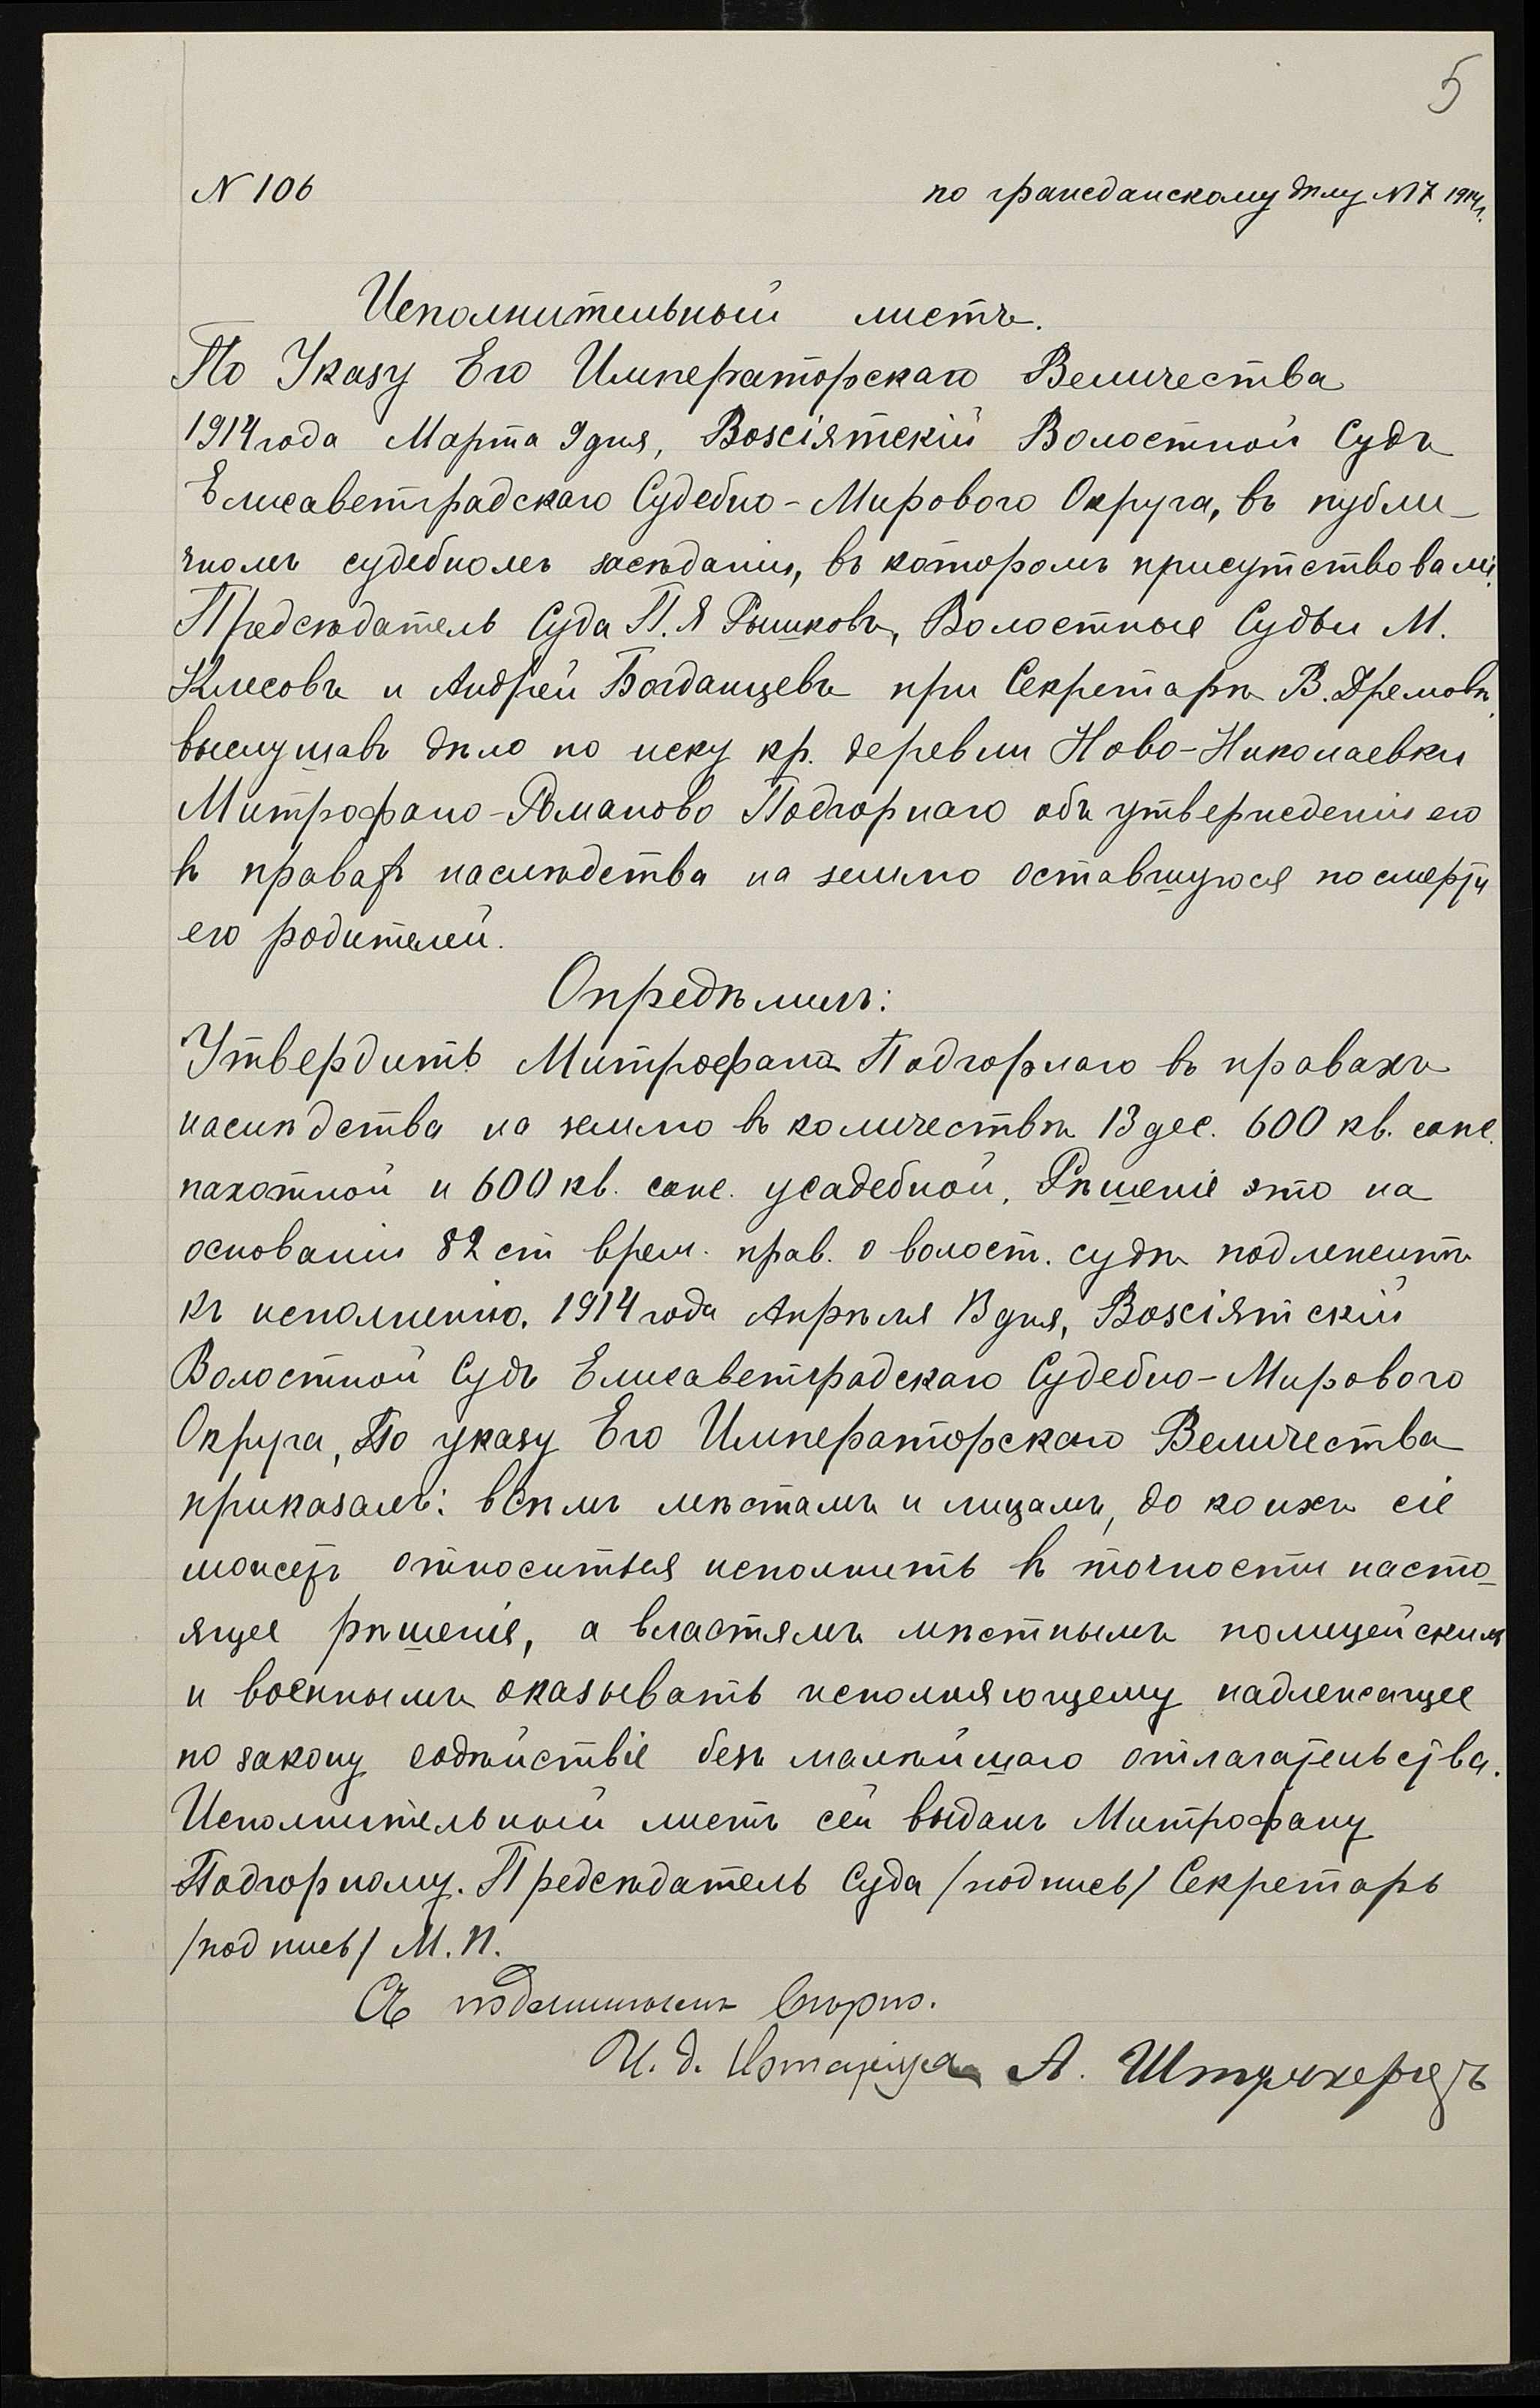 5
N 106
по гражданскому дѣлу N 17 1914 г.
Исполнительный листъ.
По Указу Его Императорскаго Величества
1914 года Марта 9 дня, Возсіятскій Волостной Судъ
Елисаветградскаго Судебно-Мирового Округа, въ публи-
чномъ судебномъ засѣданіи, въ которомъ присутствовали:
Предсѣдатель Суда П. Я Рышковъ, Волостные Судьи М.
Клесовъ и Андрей Богданцевъ при Секретарѣ В. Дремовѣ,
выслушавъ дѣло по иску кр. деревни Ново-Николаевки
Митрофано-Романово Подгорнаго объ утвержденіи его
въ правахъ наслѣдства на землю оставшуюся по смерти
его родителей.
Опредѣлилъ:
Утвердить Митрофана Подгорнаго въ правахъ
наслѣдства на землю въ количествѣ 13 дес. 600 кв. саж.
пахотной и 600 кв. саж. усадебной. Рѣшеніе это на
основаніи 82 ст врем. прав. о волост. судѣ подлежитъ
къ исполненію. 1914 года Апрѣля 13 дня, Возсіятскій
Волостной Судъ Елисаветградскаго Судебно-Мирового
Округа, По указу Его Императорскаго Величества
приказалъ: всѣмъ мѣстамъ и лицамъ, до коихъ сіе
можетъ относиться исполнить въ точности насто-
ящее рѣшеніе, а властямъ мѣстнымъ полицейскимъ
и военнымъ оказывать исполняющему надлежащее
по закону содѣйствіе безъ малѣйшаго отлагательства.
Исполнительный листъ сей выданъ Митрофану
Подгорному. Предсѣдатель Суда /подпись/ Секретарь
/подпись/ М. П.
Съ подлиннымъ вѣрно.
И. д. Нотаріуса А.